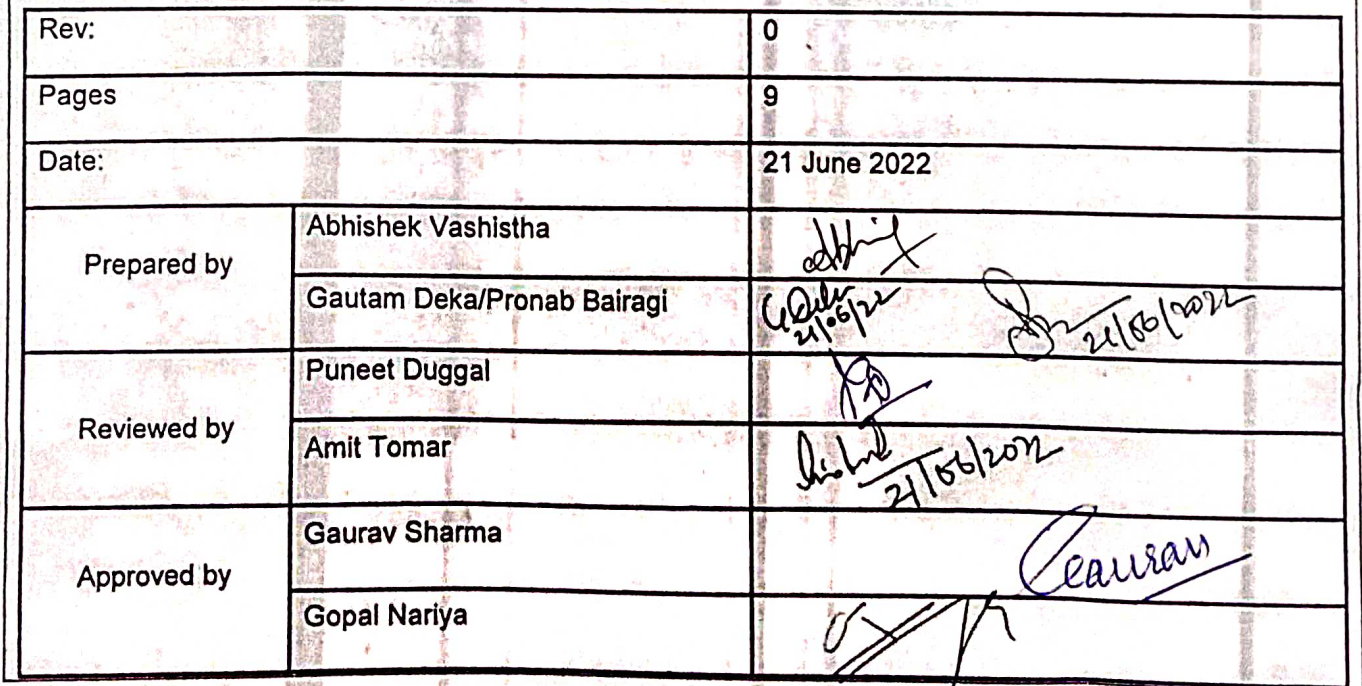 Rev: 0
Pages 9
Date: 21 June 2022
Prepared by
Abhishek Vashistha
Gautam Deka/Pronab Bairagi G Deka 21/06/22 21/06/2022
Reviewed by
Puneet Duggal
Amit Tomar 21/06/2022
Approved by
Gaurav Sharma Gaurav
Gopal Nariya